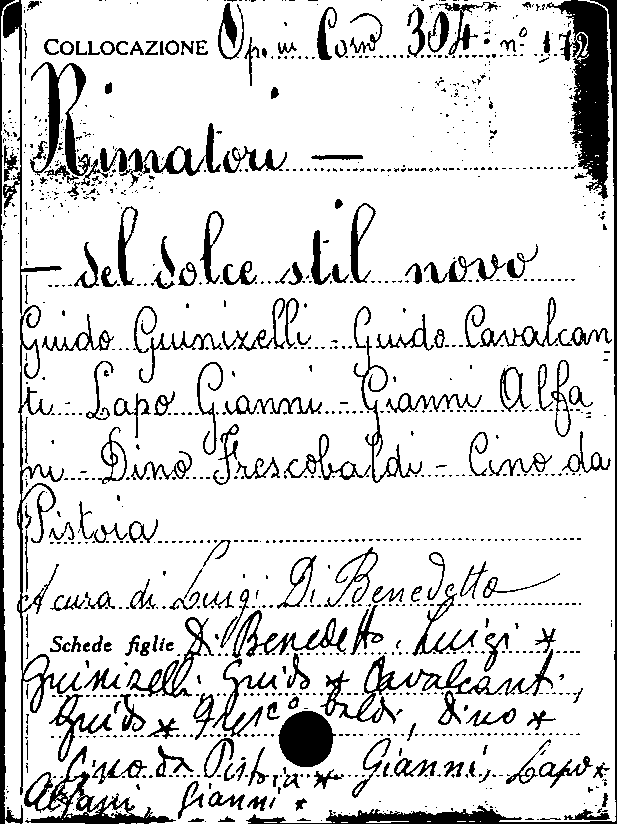 COLLOCAZIONE Op. in Corso 304. nº 172
Rimatori —
— del dolce stil novo
Guido Guinizelli - Guido Cavalcan
ti - Lapo Gianni - Gianni Alfa
ni - Dino Frescobaldi - Cino da
Pistoia
A cura di Luigi Di Benedetto
Schede figlie Di Benedetto, Luigi *
Guinizelli, Guido * Cavalcanti,
Guido * Frescobaldi, Dino *
Cino da Pistoia * Gianni, Lapo *
Alfani, Gianni *